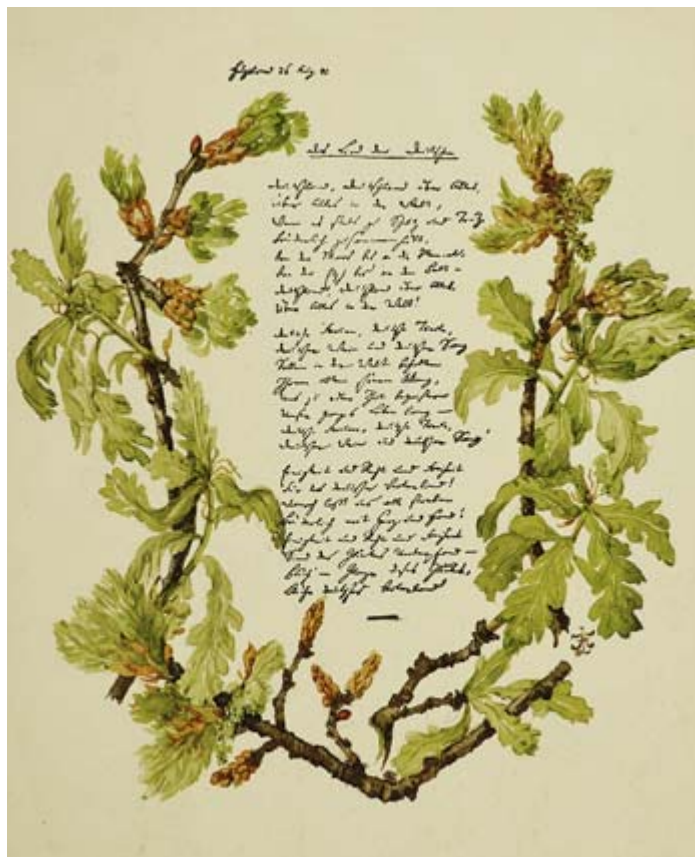 Helgoland 26 Aug. 41
Das Lied der Deutschen
Deutschland, Deutschland über Alles,
über Alles in der Welt,
Wenn es stets zu Schutz und Trutze
Brüderlich zusammenhält,
Von der Maas bis an die Memel,
Von der Etsch bis an den Belt –
Deutschland, Deutschland über Alles,
über Alles in der Welt!
Deutsche Frauen, deutsche Treue,
Deutscher Wein und deutscher Sang
Sollen in der Welt behalten
Ihren alten schönen Klang,
Uns zu edler That begeistern
Unser ganzes Leben lang –
Deutsche Frauen, deutsche Treue,
Deutscher Wein und deutscher Sang!
Einigkeit und Recht und Freiheit
Für das deutsche Vaterland!
Danach laßt uns alle streben
Brüderlich mit Herz und Hand!
Einigkeit und Recht und Freiheit
Sind des Glückes Unterpfand –
Blüh' im Glanze dieses Glückes,
Blühe deutsches Vaterland!